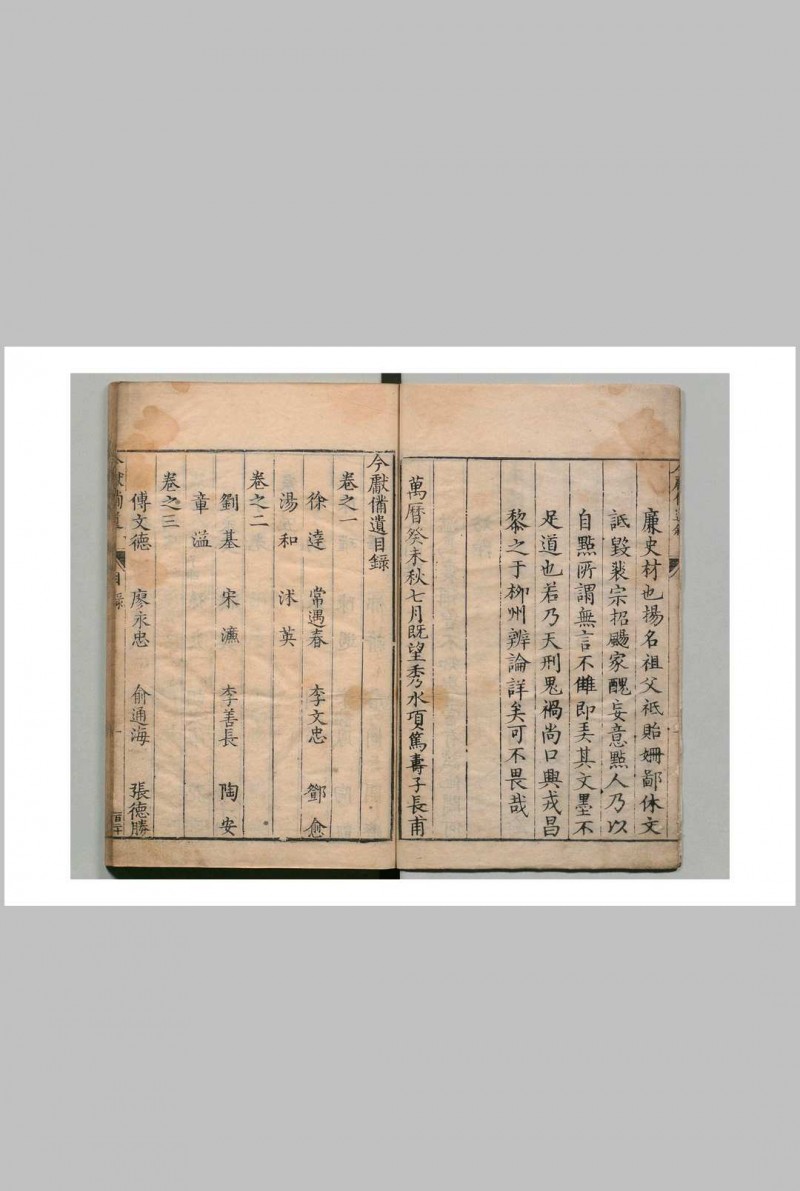 廉史材也揚名祖父祗貽姍鄙休文
詆毀裴宗招颺家醜妄意點人乃以
自點所謂無言不讎即美其文墨不
足道也若乃天刑鬼禍尚口興戎昌
黎之于柳州辨論詳矣可不畏哉
萬曆癸未秋七月既望秀水項篤壽子長甫
今獻備遺目錄
卷之一
徐達 常遇春 李文忠 鄧愈
湯和 沐英
卷之二
劉基 宋濂 李善長 陶安
章溢
卷之三
傅文德 廖永忠 俞通海 張德勝
目錄